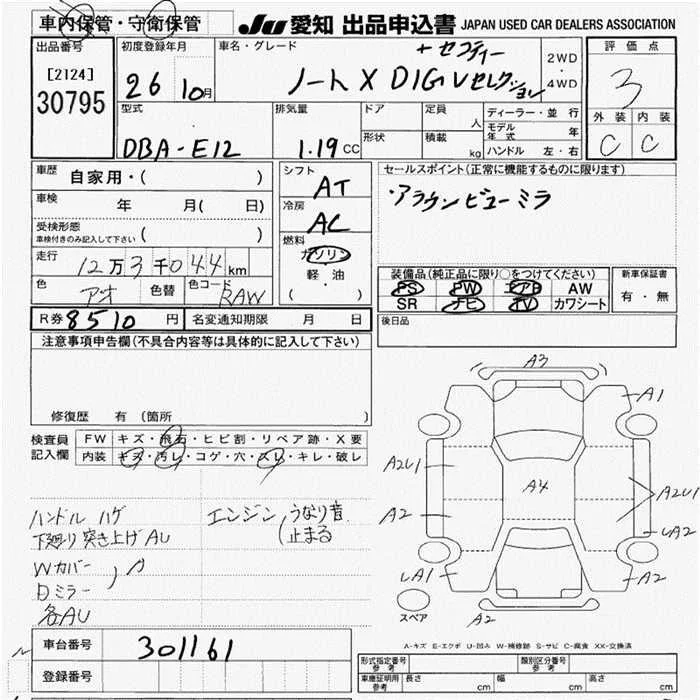 車内保管・守衛保管
JU 愛知 出品申込書 JAPAN USED CAR DEALERS ASSOCIATION
出品番号
[2124]
30795
初度登録年月
26 10月
車名・グレード
+セフティー
ノート X DIG V セレクション
2WD
・
4WD
評価点
3
外装 内装
C C
型式
DBA-E12
排気量
1.19 CC
ドア
形状
定員
人
積載
kg
ディーラー・並行
モデル年式 年
ハンドル 左・右
車歴
自家用・( )
車検
年 月( 日)
受検形態
車検付きのみ記入して下さい ( )
走行
12万3千044km
色
アオ
色替
色コード
RAW
シフト
AT
冷房
AC
燃料
ガソリン
軽・油
( ・ )
セールスポイント(正常に機能するものに限ります)
・アラウンドビューミラ
装備品(純正品に限り○をつけてください)
PS PW エアB AW
SR ナビ TV カワシート
新車保証書
有・無
後日品
R券 8510 円
名変通知期限 月 日
注意事項申告欄(不具合内容等は具体的に記入して下さい)
修復歴 有 (箇所 )
検査員記入欄
FW キズ・飛石・ヒビ割・リペア跡・X要
内装 キズ・汚レ・コゲ・穴・スレ・キレ・破レ
ハンドル ハゲ
下廻り突き上げAU
Wカバー
Dミラー
各AU
エンジン うなり音
(止まる
A3
A1
A2U1
A4
A2U1
A2
LA2
LA1
A2
A2
スペア
A-キズ E-エクボ U-凹み W-補修跡 S-サビ C-腐食 XX-交換済
車台番号
301161
登録番号
型式指定番号 参考
類別区分番号 参考
車庫証明用 参考
長さ cm
幅 cm
高さ cm